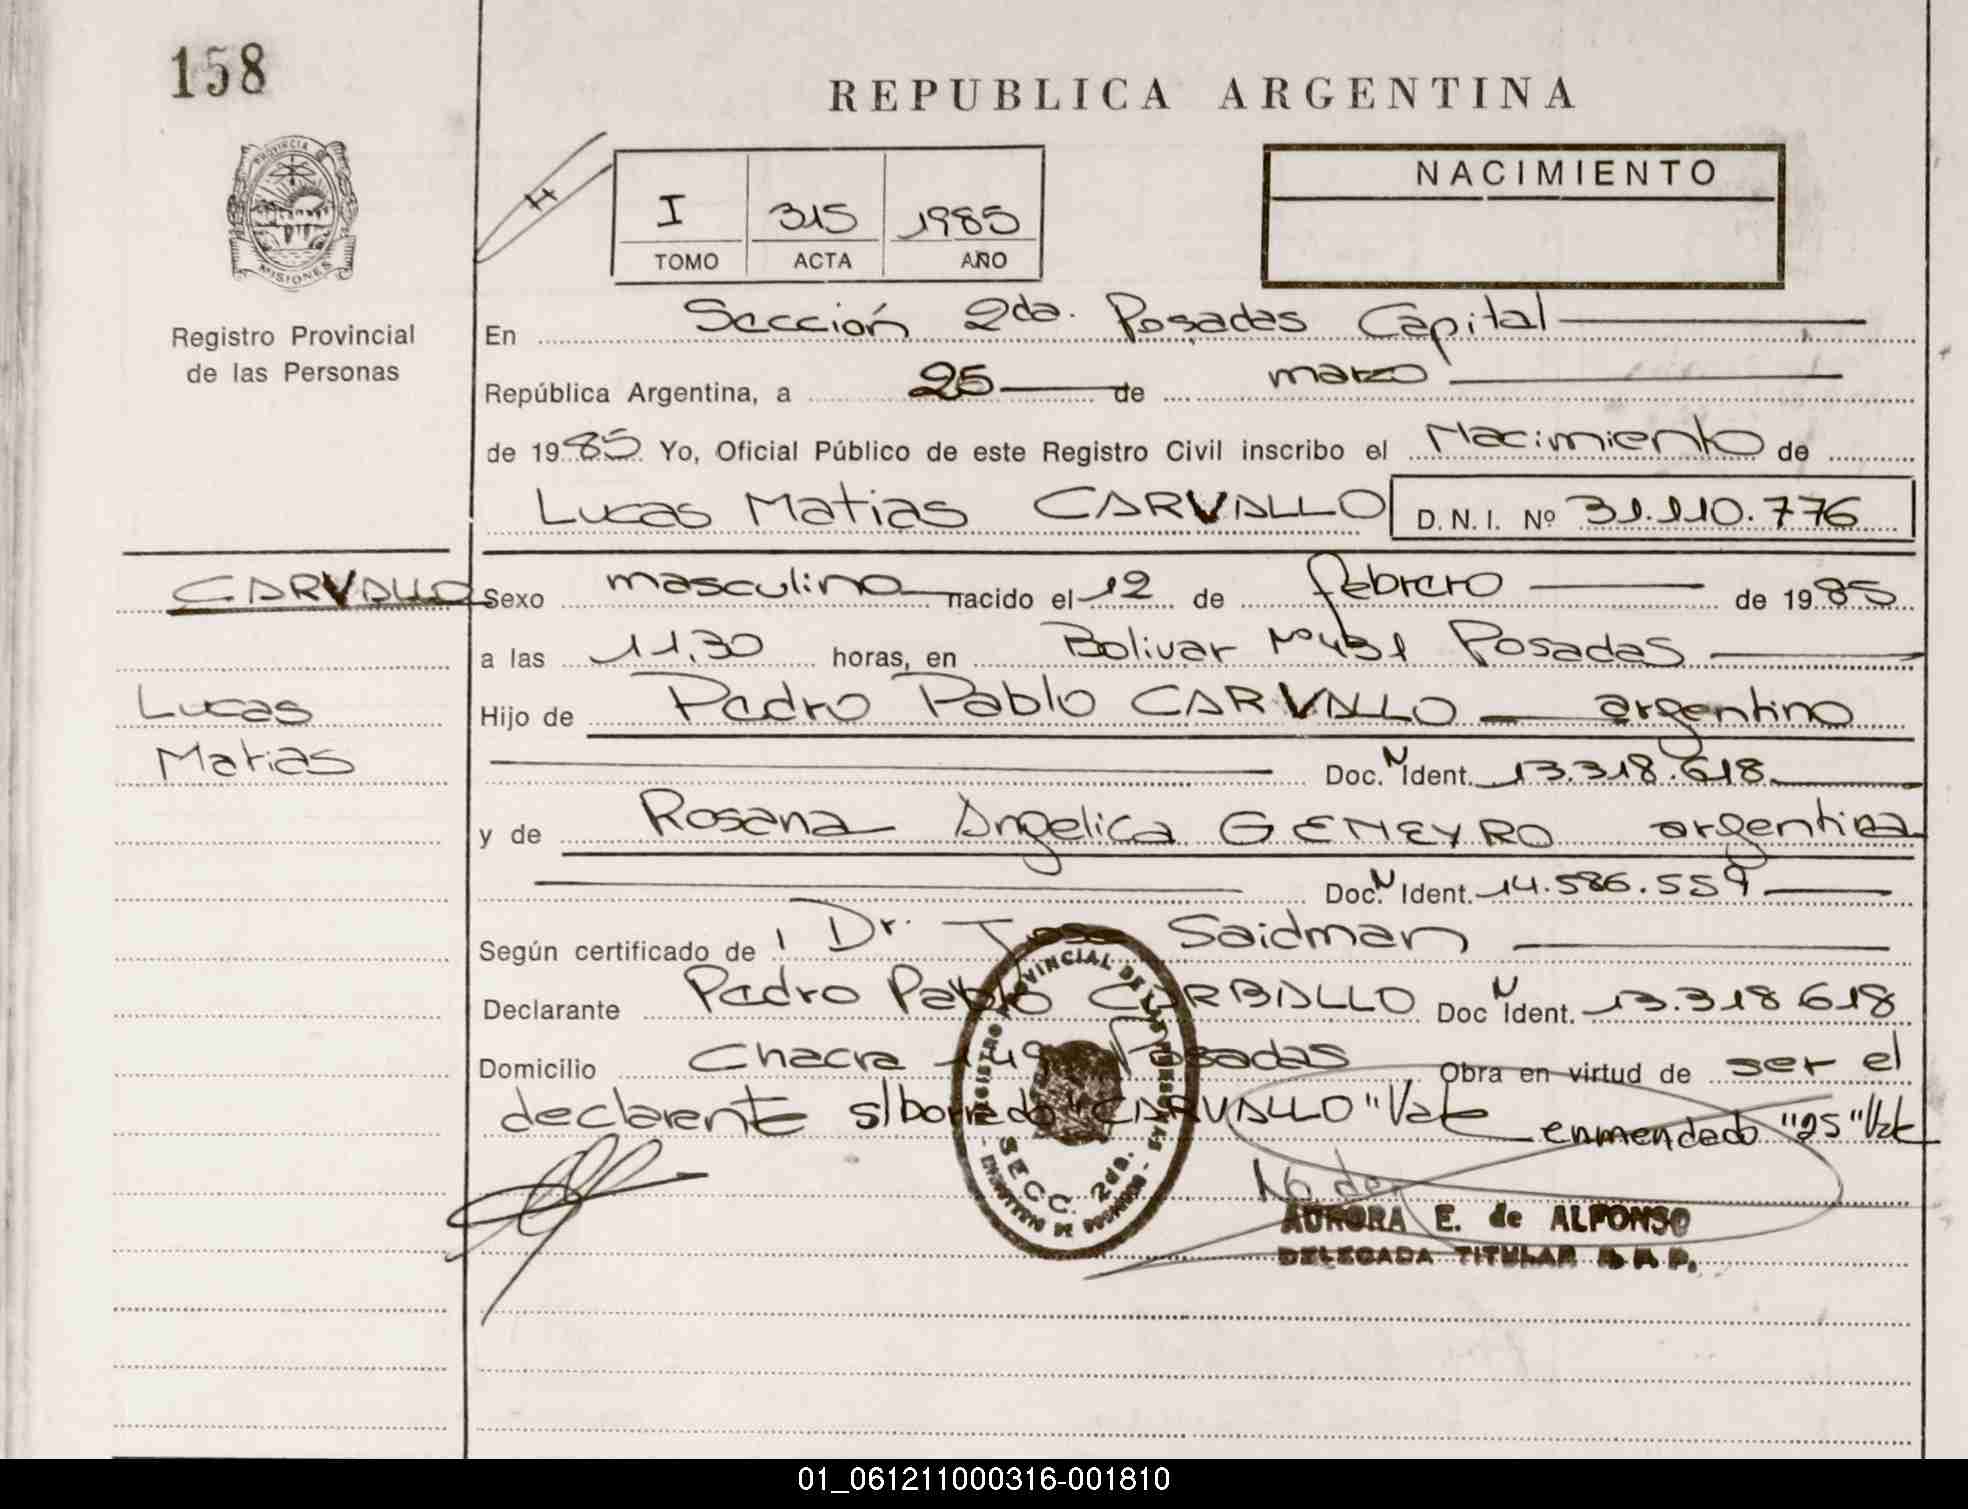 158
REPUBLICA ARGENTINA
NACIMIENTO
PROVINCIA
MISIONES
H
I 315 1985
TOMO ACTA AÑO
Registro Provincial
de las Personas
En Sección 2da. Posadas Capital
República Argentina, a 25 de marzo
de 1985 Yo, Oficial Público de este Registro Civil inscribo el Nacimiento de
Lucas Matias CARVALLO D.N.I. Nº 31.110.776
CARVALLO
Sexo masculino nacido el 12 de febrero de 1985
a las 11,30 horas, en Bolivar Nº 431 Posadas
Lucas
Matias
Hijo de Pedro Pablo CARVALLO argentino
Doc. N Ident. 13.318.618
y de Rosana Angelica GENEYRO argentina
Doc. N Ident. 14.586.559
Según certificado de Dr. Saidman
Declarante Pedro Pablo CARBALLO Doc N Ident. 13.318618
Domicilio Chacra 149 Posadas Obra en virtud de ser el
declarente s/borrado "CARVALLO" Vale enmendado "25" Vale
REGISTRO PROVINCIAL DE LAS PERSONAS
SECC. 2da.
MINISTERIO DE GOBIERNO
AURORA E. de ALFONSO
DELEGADA TITULAR R.P.P.
01_061211000316-001810